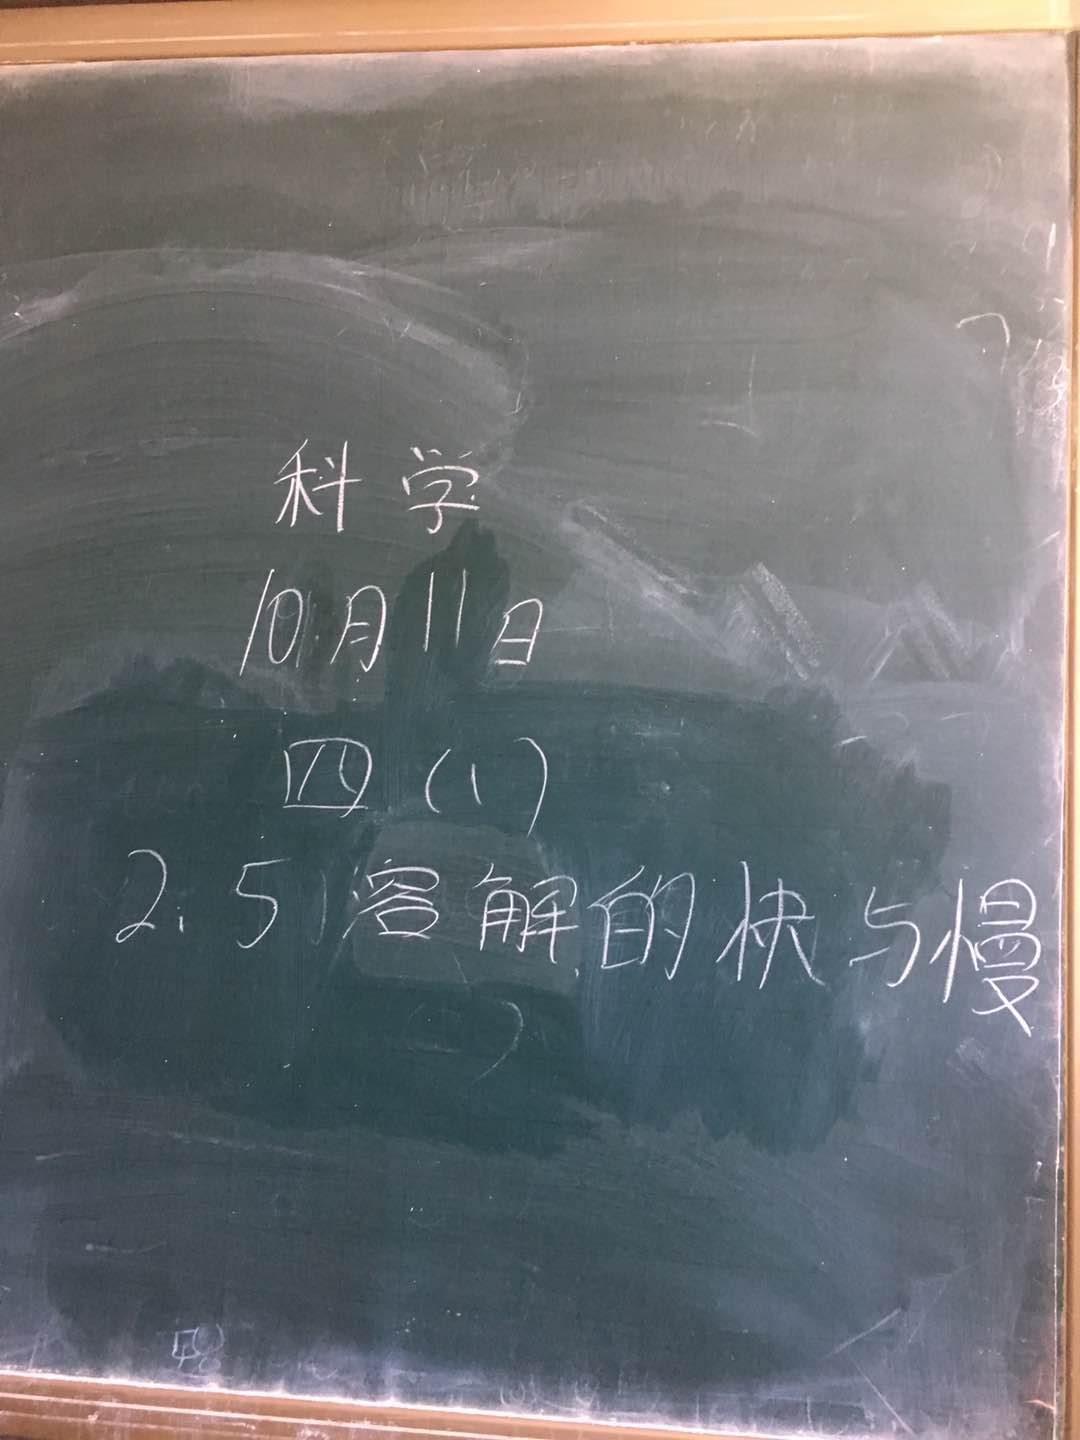 科学
10月11日
四(1)
2.5溶解的快与慢